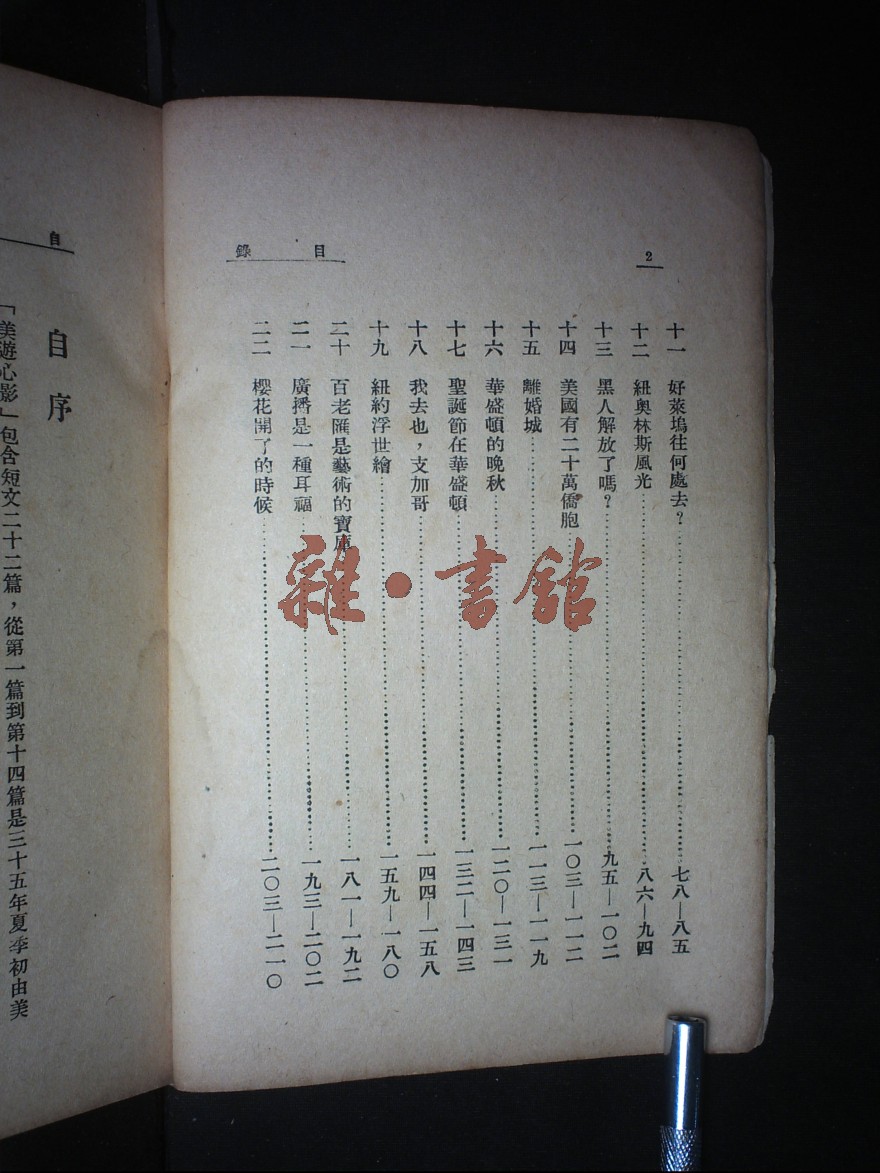 2
目錄
十一 好萊塢往何處去?……七八—八五
十二 紐奧林斯風光……八六—九四
十三 黑人解放了嗎?……九五—一〇二
十四 美國有二十萬僑胞……一〇三—一一二
十五 離婚城……一一三—一一九
十六 華盛頓的晚秋……一二〇—一三一
十七 聖誕節在華盛頓……一三二—一四三
十八 我去也,支加哥……一四四—一五八
十九 紐約浮世繪……一五九—一八〇
二十 百老匯是藝術的寶庫……一八一—一九二
二一 廣播是一種耳福……一九三—二〇二
二二 櫻花開了的時候……二〇三—二一〇
雜·書館
自
自序
「美遊心影」包含短文二十二篇,從第一篇到第十四篇是三十五年夏季初由美